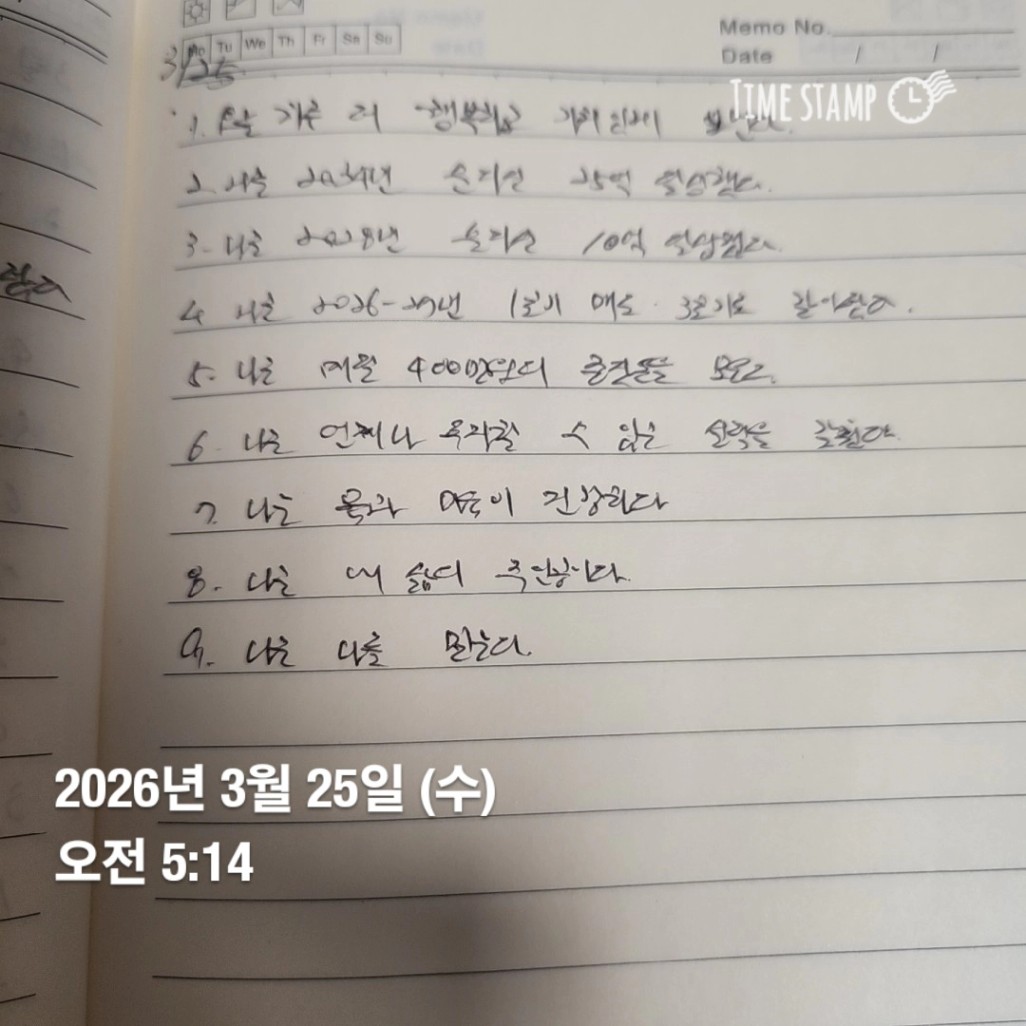 Mo Tu We Th Fr Sa Su
Memo No.
Date / /
3/25
TIME STAMP
1. 오늘 하루 더 행복하고 가치있게 보낸다.
2. 나는 2034년 순자산 25억 달성했다.
3. 나는 2028년 순자산 10억 달성했다.
4. 나는 2026-27년 1호기 매도. 3호기로 갈아탄다.
5. 나는 매월 400만원의 종잣돈을 모은다.
6. 나는 언제나 투자할 수 있는 실력을 갖췄다.
7. 나는 몸과 마음이 건강하다
8. 나는 내 삶의 주인공이다.
9. 나는 나를 믿는다.
2026년 3월 25일 (수)
오전 5:14